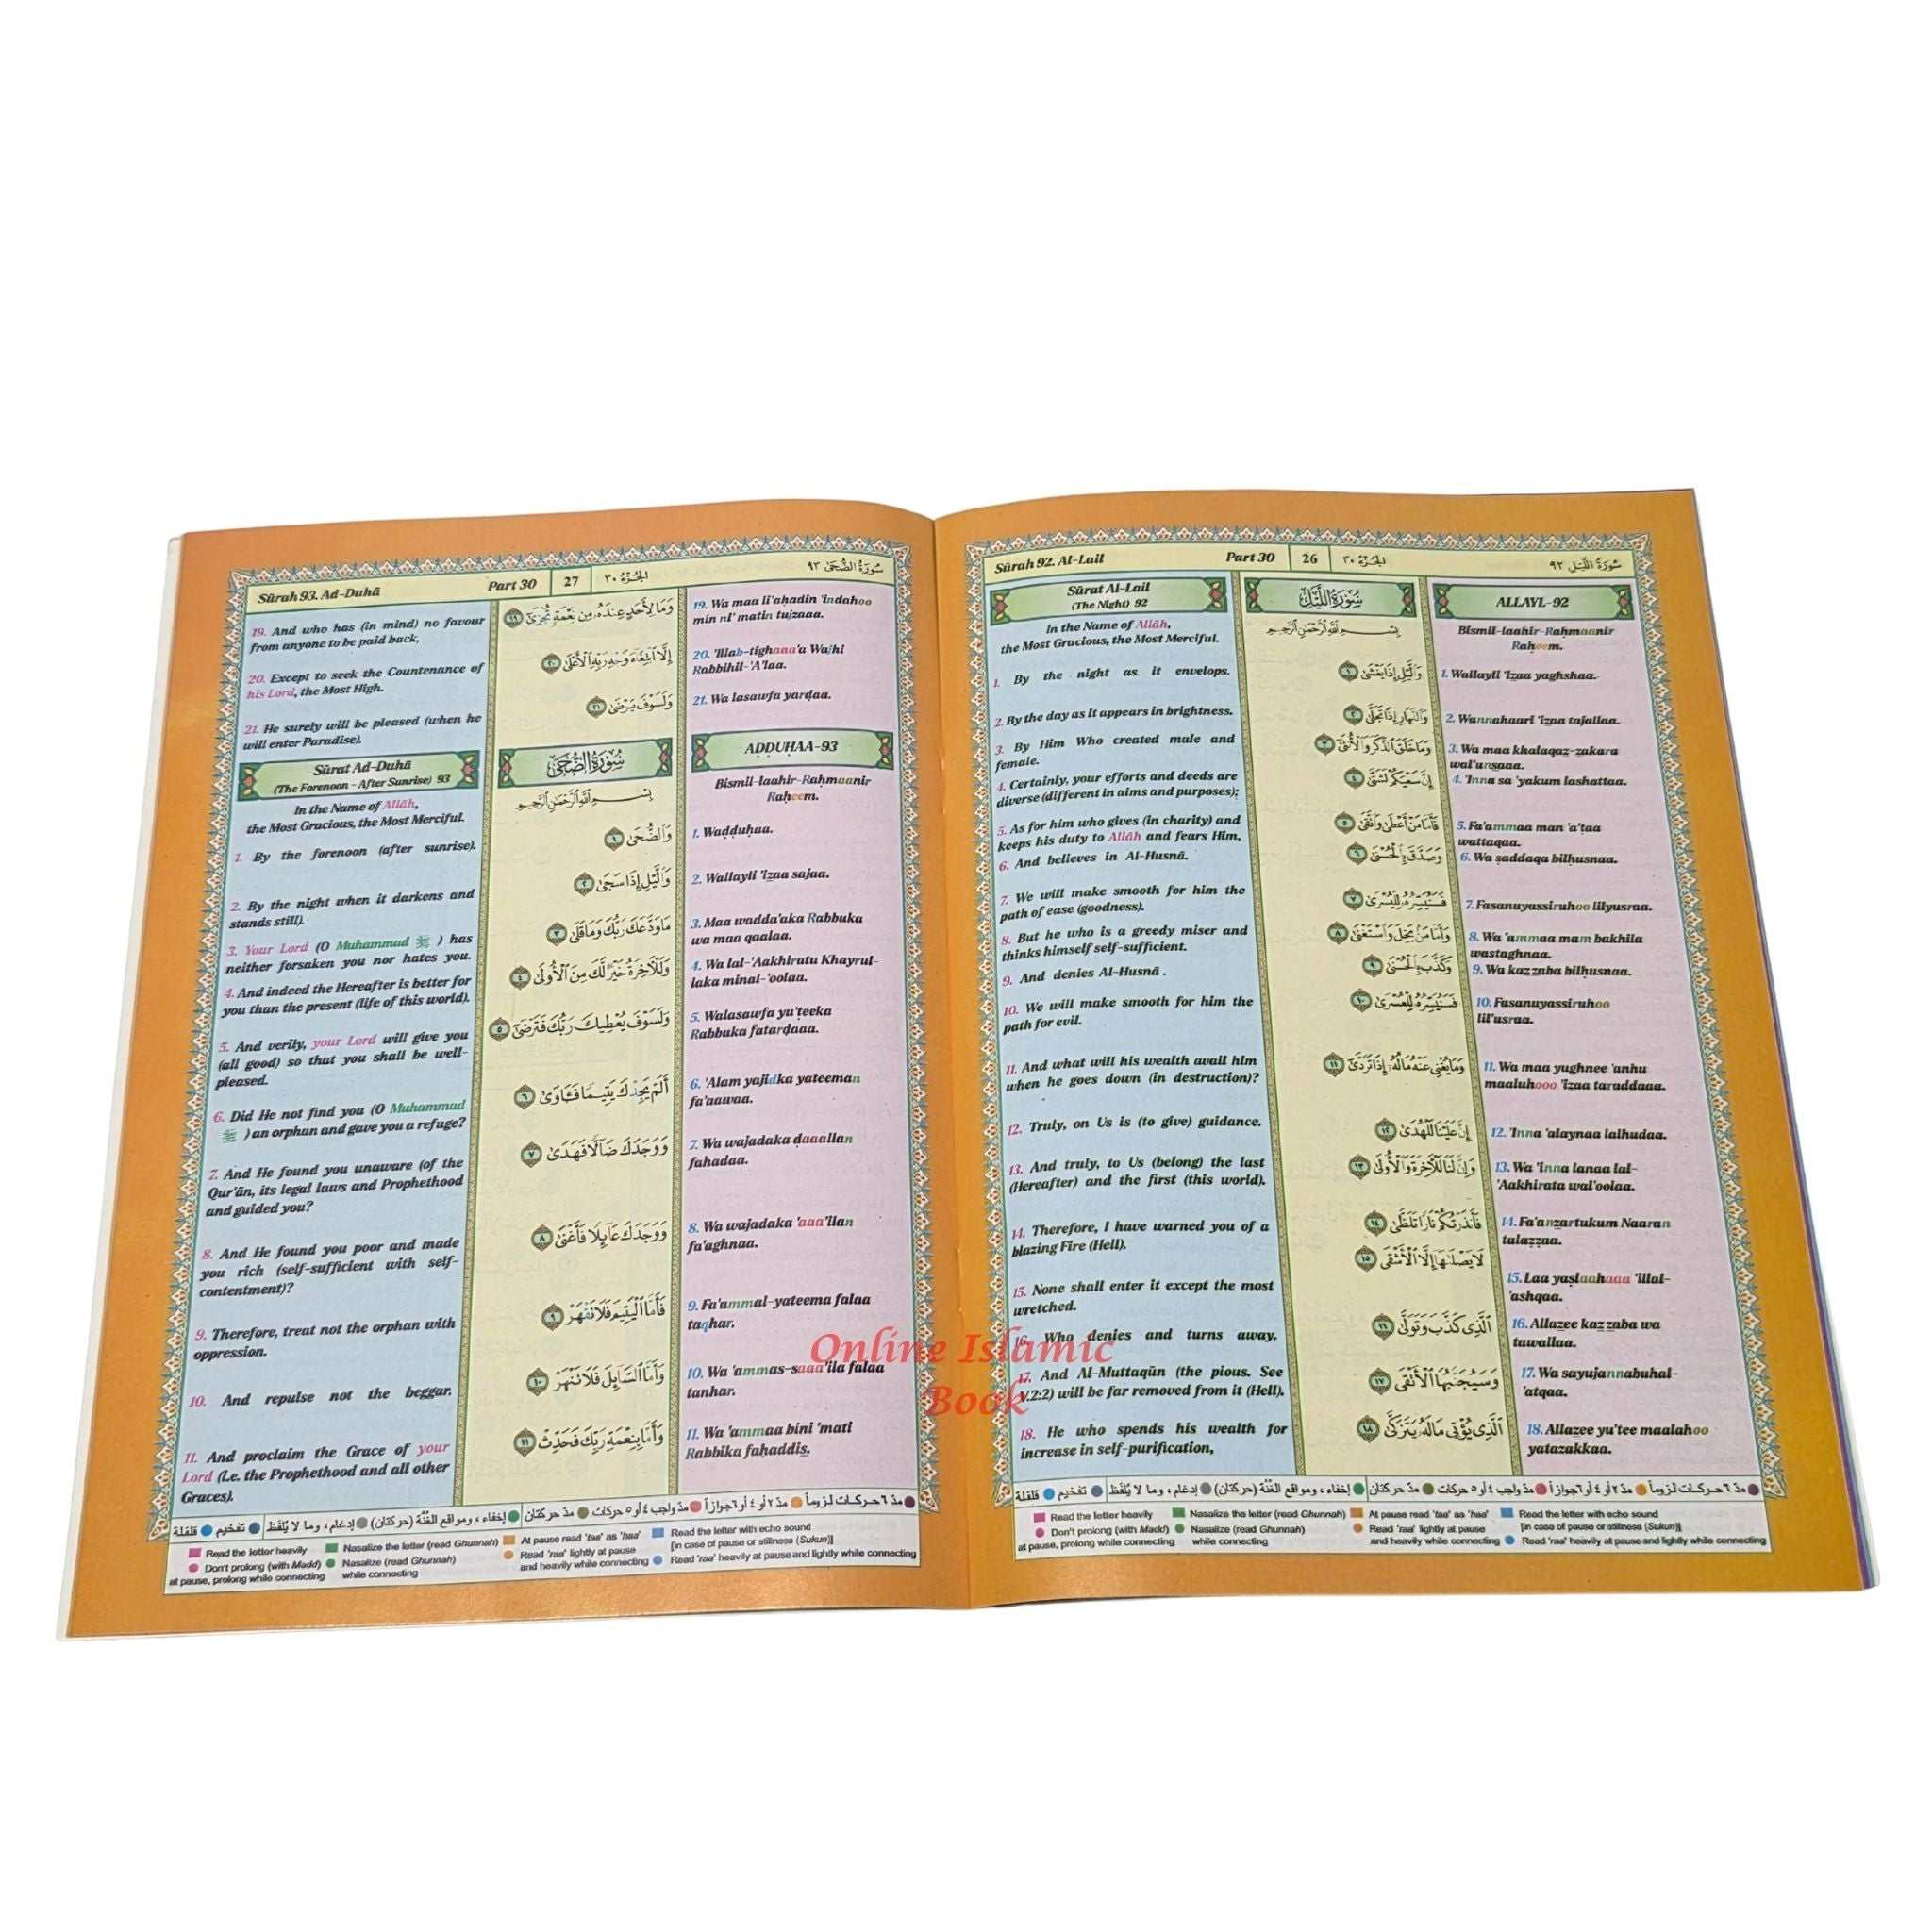 Sūrah 92. Al-Lail
Part 30
26
الجزء ٣٠
سورة الليل ٩٢
Sūrat Al-Lail
(The Night) 92
In the Name of Allâh,
the Most Gracious, the Most Merciful.
1. By the night as it envelops.
2. By the day as it appears in brightness.
3. By Him Who created male and
female.
4. Certainly, your efforts and deeds are
diverse (different in aims and purposes);
5. As for him who gives (in charity) and
keeps his duty to Allâh and fears Him,
6. And believes in Al-Husnâ.
7. We will make smooth for him the
path of ease (goodness).
8. But he who is a greedy miser and
thinks himself self-sufficient.
9. And denies Al-Husnâ .
10. We will make smooth for him the
path for evil.
11. And what will his wealth avail him
when he goes down (in destruction)?
12. Truly, on Us is (to give) guidance.
13. And truly, to Us (belong) the last
(Hereafter) and the first (this world).
14. Therefore, I have warned you of a
blazing Fire (Hell).
15. None shall enter it except the most
wretched.
16. Who denies and turns away.
17. And Al-Muttaqūn (the pious. See
V.2:2) will be far removed from it (Hell).
18. He who spends his wealth for
increase in self-purification,
سُورَةُ اللَّيْلِ
بِسْمِ اللَّهِ الرَّحْمَٰنِ الرَّحِيمِ
وَاللَّيْلِ إِذَا يَغْشَىٰ ١
وَالنَّهَارِ إِذَا تَجَلَّىٰ ٢
وَمَا خَلَقَ الذَّكَرَ وَالْأُنثَىٰ ٣
إِنَّ سَعْيَكُمْ لَشَتَّىٰ ٤
فَأَمَّا مَنْ أَعْطَىٰ وَاتَّقَىٰ ٥
وَصَدَّقَ بِالْحُسْنَىٰ ٦
فَسَنُيَسِّرُهُ لِلْيُسْرَىٰ ٧
وَأَمَّا مَنْ بَخِلَ وَاسْتَغْنَىٰ ٨
وَكَذَّبَ بِالْحُسْنَىٰ ٩
فَسَنُيَسِّرُهُ لِلْعُسْرَىٰ ١٠
وَمَا يُغْنِي عَنْهُ مَالُهُ إِذَا تَرَدَّىٰ ١١
إِنَّ عَلَيْنَا لَلْهُدَىٰ ١٢
وَإِنَّ لَنَا لَلْآخِرَةَ وَالْأُولَىٰ ١٣
فَأَنذَرْتُكُمْ نَارًا تَلَظَّىٰ ١٤
لَا يَصْلَاهَا إِلَّا الْأَشْقَى ١٥
الَّذِي كَذَّبَ وَتَوَلَّىٰ ١٦
وَسَيُجَنَّبُهَا الْأَتْقَى ١٧
الَّذِي يُؤْتِي مَالَهُ يَتَزَكَّىٰ ١٨
ALLAYL-92
Bismil-laahir-Raḥmaanir
Raḥeem.
1. Wallayli 'izaa yaghshaa.
2. Wannahaari 'izaa tajallaa.
3. Wa maa khalaqaz-zakara
wal'unsaaa.
4. 'Inna sa 'yakum lashattaa.
5. Fa'ammaa man 'a'ṭaa
wattaqaa.
6. Wa ṣaddaqa bilḥusnaa.
7. Fasanuyassiruhoo lilyusraa.
8. Wa 'ammaa mam bakhila
wastaghnaa.
9. Wa kazzaba bilḥusnaa.
10. Fasanuyassiruhoo
lil'usraa.
11. Wa maa yughnee 'anhu
maaluhooo 'izaa taraddaaa.
12. 'Inna 'alaynaa lalhudaa.
13. Wa 'inna lanaa lal-
'Aakhirata wal'oolaa.
14. Fa'anzartukum Naaran
talaẓẓaa.
15. Laa yaṣlaahaaa 'illal-
'ashqaa.
16. Allazee kazzaba wa
tawallaa.
17. Wa sayujannabuhal-
'atqaa.
18. Allazee yu'tee maalahoo
yatazakkaa.
مدّ ٦ حركات لزوماً مدّ ٢ أو ٤ أو ٦ جوازاً مدّ واجب ٤ أو ٥ حركات مدّ حركتان إخفاء ، ومواقع الغنّة (حركتان) إدغام ، وما لا يُلفَظ تفخيم قلقلة
Read the letter heavily Nasalize the letter (read Ghunnah) At pause read 'taa' as 'haa' Read the letter with echo sound
Don't prolong (with Madd) Nasalize (read Ghunnah) Read 'raa' lightly at pause [in case of pause or stillness (Sukun)]
at pause, prolong while connecting while connecting and heavily while connecting Read 'raa' heavily at pause and lightly while connecting
Sūrah 93. Ad-Duhâ
Part 30
27
الجزء ٣٠
سورة الضحى ٩٣
19. And who has (in mind) no favour
from anyone to be paid back,
20. Except to seek the Countenance of
his Lord, the Most High.
21. He surely will be pleased (when he
will enter Paradise).
Sūrat Ad-Duhâ
(The Forenoon - After Sunrise) 93
In the Name of Allâh,
the Most Gracious, the Most Merciful.
1. By the forenoon (after sunrise).
2. By the night when it darkens and
stands still).
3. Your Lord (O Muhammad ﷺ ) has
neither forsaken you nor hates you.
4. And indeed the Hereafter is better for
you than the present (life of this world).
5. And verily, your Lord will give you
(all good) so that you shall be well-
pleased.
6. Did He not find you (O Muhammad
ﷺ ) an orphan and gave you a refuge?
7. And He found you unaware (of the
Qur'ân, its legal laws and Prophethood
and guided you?
8. And He found you poor and made
you rich (self-sufficient with self-
contentment)?
9. Therefore, treat not the orphan with
oppression.
10. And repulse not the beggar.
11. And proclaim the Grace of your
Lord (i.e. the Prophethood and all other
Graces).
وَمَا لِأَحَدٍ عِندَهُ مِن نِّعْمَةٍ تُجْزَىٰ ١٩
إِلَّا ابْتِغَاءَ وَجْهِ رَبِّهِ الْأَعْلَىٰ ٢٠
وَلَسَوْفَ يَرْضَىٰ ٢١
سُورَةُ الضُّحَىٰ
بِسْمِ اللَّهِ الرَّحْمَٰنِ الرَّحِيمِ
وَالضُّحَىٰ ١
وَاللَّيْلِ إِذَا سَجَىٰ ٢
مَا وَدَّعَكَ رَبُّكَ وَمَا قَلَىٰ ٣
وَلَلْآخِرَةُ خَيْرٌ لَّكَ مِنَ الْأُولَىٰ ٤
وَلَسَوْفَ يُعْطِيكَ رَبُّكَ فَتَرْضَىٰ ٥
أَلَمْ يَجِدْكَ يَتِيمًا فَآوَىٰ ٦
وَوَجَدَكَ ضَالًّا فَهَدَىٰ ٧
وَوَجَدَكَ عَائِلًا فَأَغْنَىٰ ٨
فَأَمَّا الْيَتِيمَ فَلَا تَقْهَرْ ٩
وَأَمَّا السَّائِلَ فَلَا تَنْهَرْ ١٠
وَأَمَّا بِنِعْمَةِ رَبِّكَ فَحَدِّثْ ١١
19. Wa maa li'aḥadin 'indahoo
min ni' matin tujzaaa.
20. 'Illab-tighaaa'a Wajhi
Rabbihil-'A'laa.
21. Wa lasawfa yarḍaa.
ADDUHAA-93
Bismil-laahir-Raḥmaanir
Raḥeem.
1. Waḍḍuḥaa.
2. Wallayli 'izaa sajaa.
3. Maa wadda'aka Rabbuka
wa maa qaalaa.
4. Wa lal-'Aakhiratu Khayrul-
laka minal-'oolaa.
5. Walasawfa yu'ṭeeka
Rabbuka fatarḍaaa.
6. 'Alam yajidka yateeman
fa'aawaa.
7. Wa wajadaka ḍaaallan
fahadaa.
8. Wa wajadaka 'aaa'ilan
fa'aghnaa.
9. Fa'ammal-yateema falaa
taqhar.
10. Wa 'ammas-saaa'ila falaa
tanhar.
11. Wa 'ammaa bini 'mati
Rabbika faḥaddis.
مدّ ٦ حركات لزوماً مدّ ٢ أو ٤ أو ٦ جوازاً مدّ واجب ٤ أو ٥ حركات مدّ حركتان إخفاء ، ومواقع الغنّة (حركتان) إدغام ، وما لا يُلفَظ تفخيم قلقلة
Read the letter heavily Nasalize the letter (read Ghunnah) At pause read 'taa' as 'haa' Read the letter with echo sound
Don't prolong (with Madd) Nasalize (read Ghunnah) Read 'raa' lightly at pause [in case of pause or stillness (Sukun)]
at pause, prolong while connecting while connecting and heavily while connecting Read 'raa' heavily at pause and lightly while connecting
Online Islamic
Book